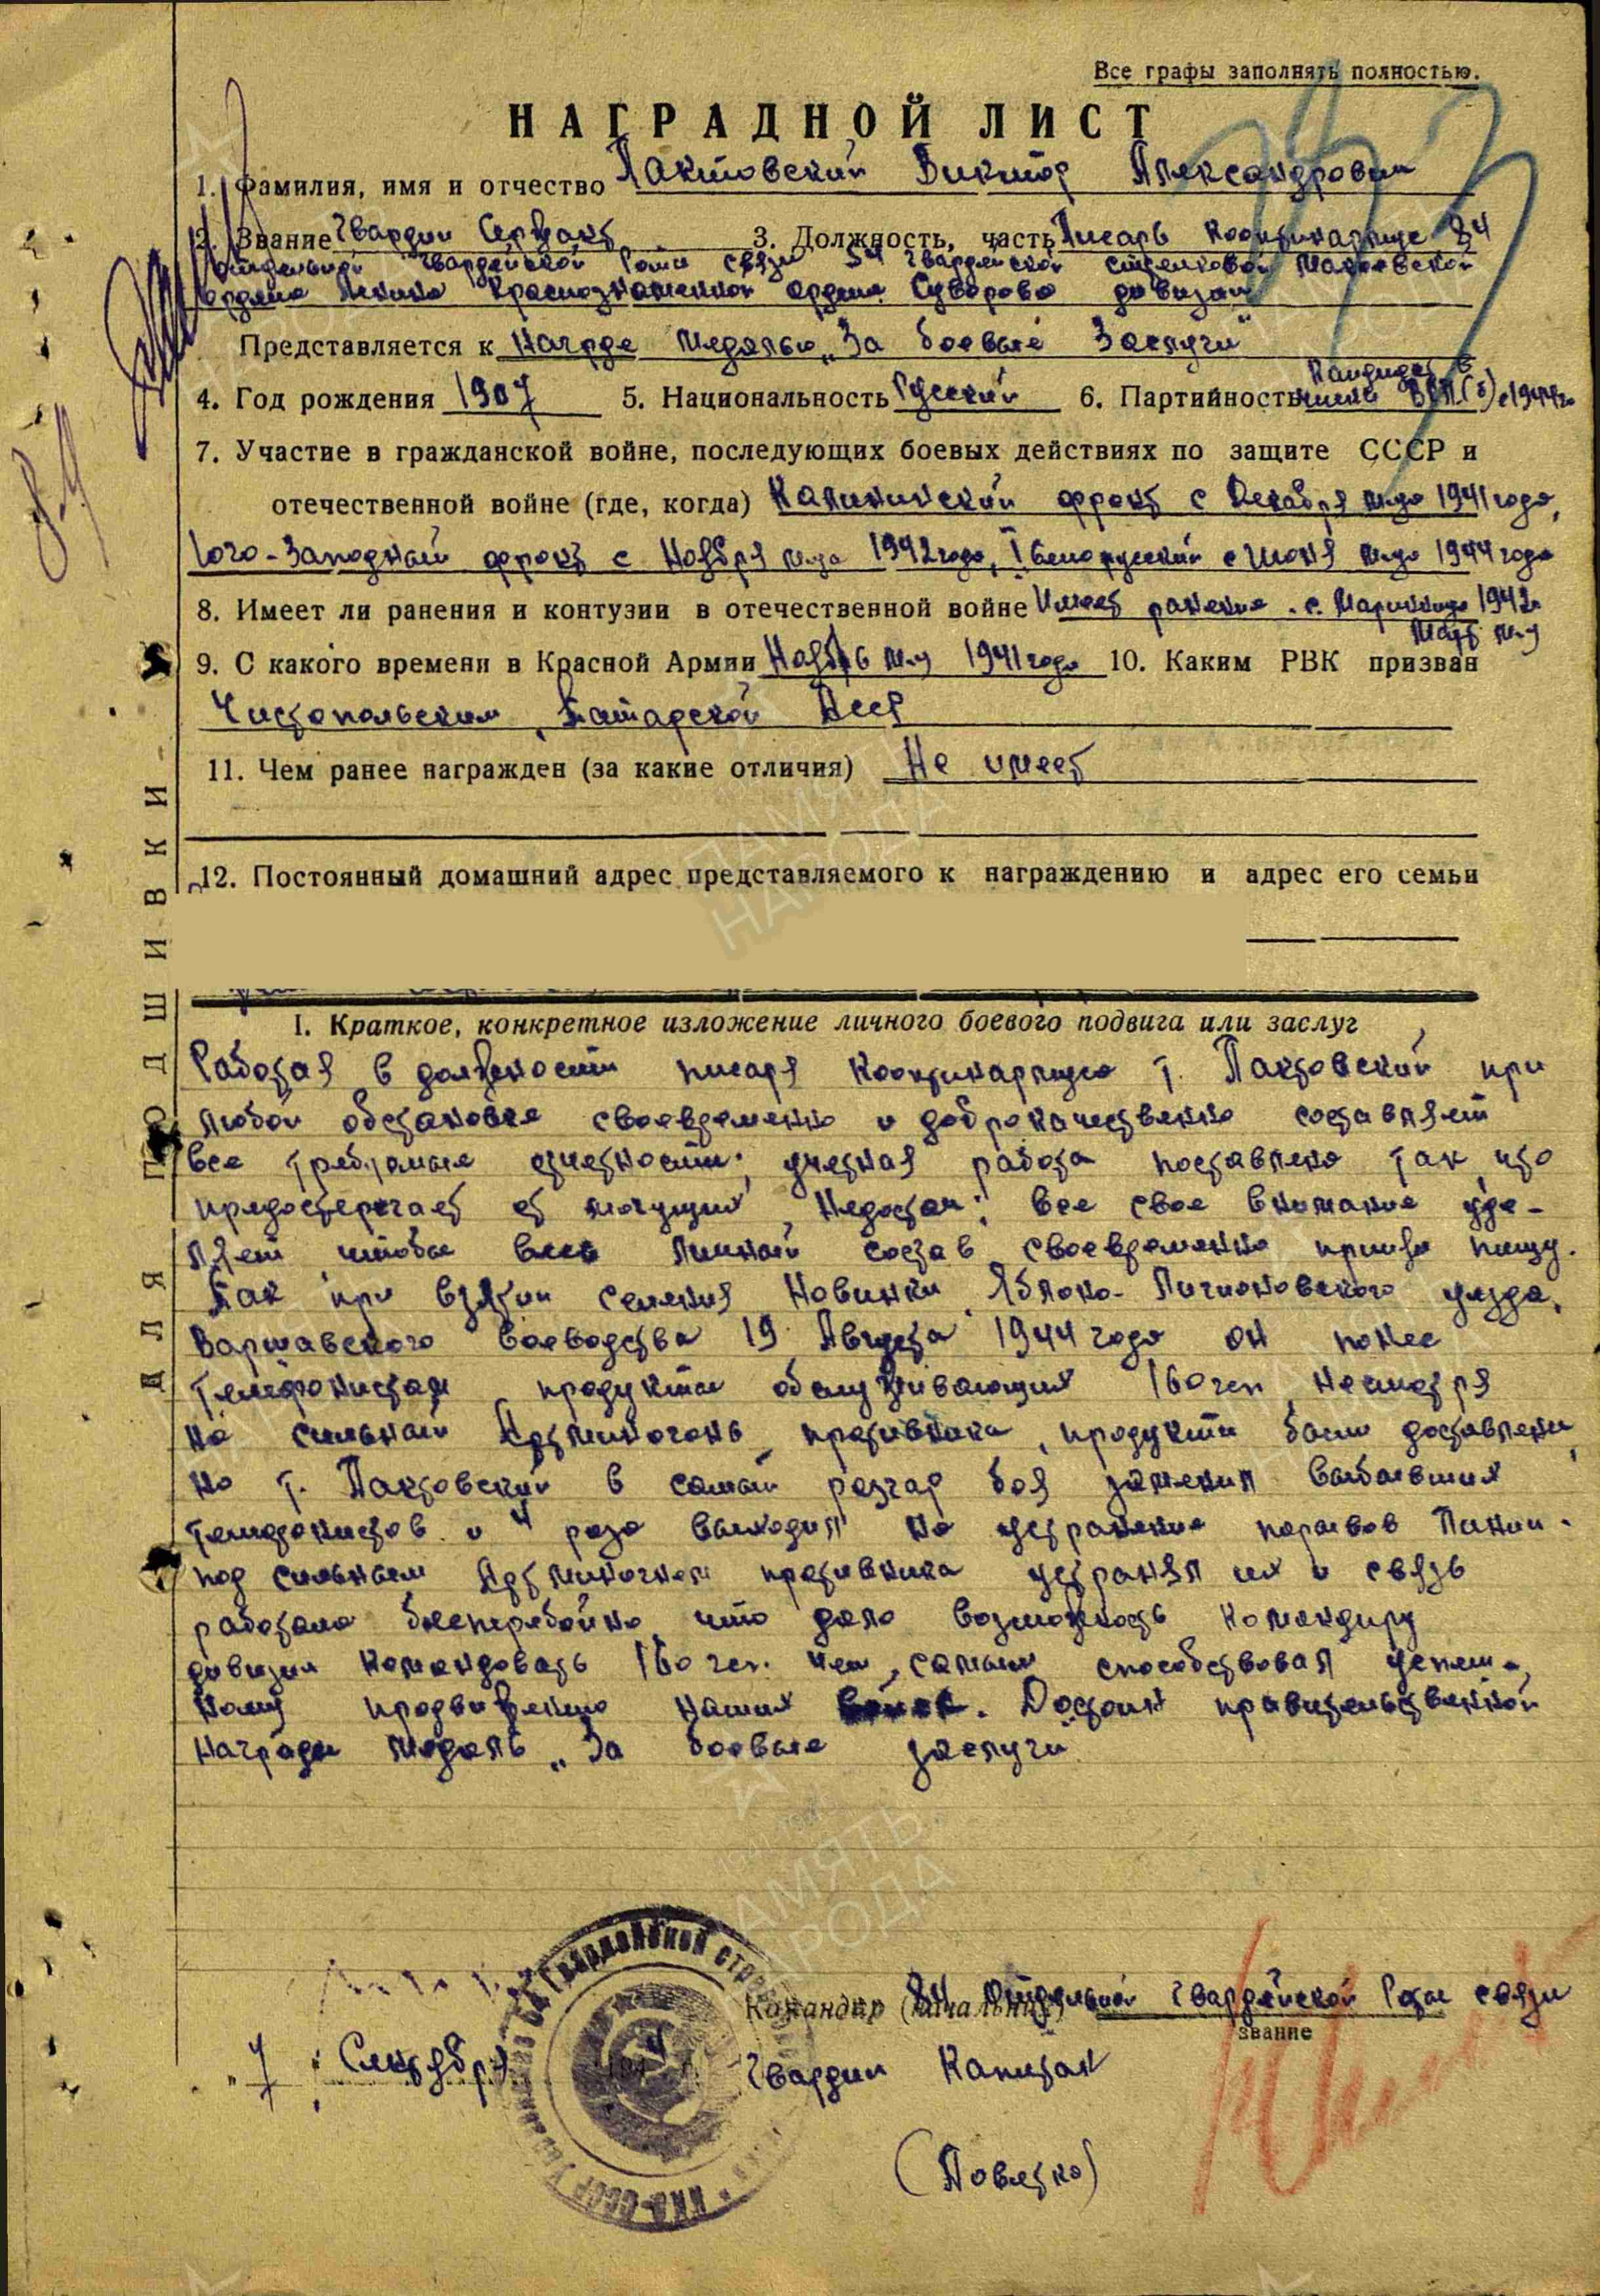 Все графы заполнять полностью.
НАГРАДНОЙ ЛИСТ
1. Фамилия, имя и отчество Пактовский Виктор Александрович
2. Звание Гвардии Сержант 3. Должность, часть Писарь 84
отдельной Гвардейской Роты связи 54 Гвардейской стрелковой Макеевской
ордена Ленина Краснознаменной ордена Суворова дивизии
Представляется к Награде Медалью „За боевые Заслуги"
4. Год рождения 1907 5. Национальность Русский 6. Партийность Кандидат в
члены ВКП(б) с 1944г
7. Участие в гражданской войне, последующих боевых действиях по защите СССР и
отечественной войне (где, когда) Калининский фронт с Декабря м-ца 1941 года,
Юго-Западный фронт с Ноября м-ца 1942 года, I Белорусский с Июня м-ца 1944 года
8. Имеет ли ранения и контузии в отечественной войне Имеет ранение 1942г
Март м-ц
9. С какого времени в Красной Армии Ноябрь м-ц 1941 года 10. Каким РВК призван
Чистопольским, Татарской АССР
11. Чем ранее награжден (за какие отличия) Не имеет
12. Постоянный домашний адрес представляемого к награждению и адрес его семьи
I. Краткое, конкретное изложение личного боевого подвига или заслуг
Работая в должности писаря т. Пактовский при
любой обстановке своевременно и доброкачественно составляет
все требуемые отчетности; учетная работа поставлена так, что
предостерегает от могущих недостач; все свое внимание уде-
ляет чтобы весь личный состав своевременно принял пищу.
Так при взятии селения Новинки, Яблоно- уезда,
Варшавского воеводства 19 Августа 1944 года он понес
телефонистам продукты обслуживающих 160 чел, несмотря
на сильный Артминогонь противника, продукты были доставлены,
но т. Пактовский в самый разгар боя заменил выбывших
телефонистов и 4 раза выходил на устранение порывов Линии.
под сильным Артминогнем противника устранял их и связь
работала бесперебойно, что дало возможность командиру
дивизии командовать 160 чел. тем самым способствовал успеш-
ному продвижению наших войск. Достоин правительственной
Награды медаль „За боевые заслуги
Командир (начальник) 84 Отдельной Гвардейской Роты связи
звание
„7" Сентября 1944 г. Гвардии Капитан
ДЛЯ ПОДШИВКИ
ПАМЯТЬ
НАРОДА